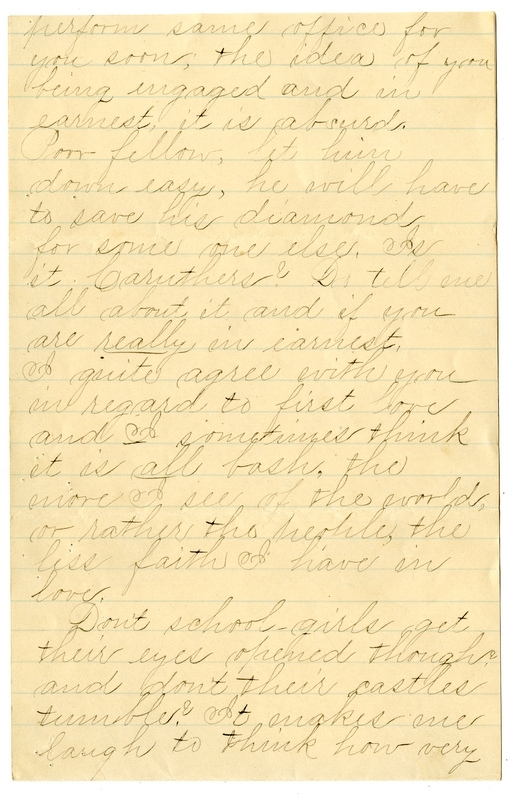 perform same office for
you soon; the idea of you
being engaged and in
earnest, it is absurd.
Poor fellow, let him
down easy, he will have
to save his diamond
for some one else. Is
it Caruthers? Do tell me
all about it and if you
are really in earnest.
I quite agree with you
in regard to first love
and I sometimes think
it is all bosh. the
more I see of the world,
or rather the people, the
less faith I have in
love.
Dont school-girls get
their eyes opened though?
and dont their castles
tumble? It makes me
laugh to think how very